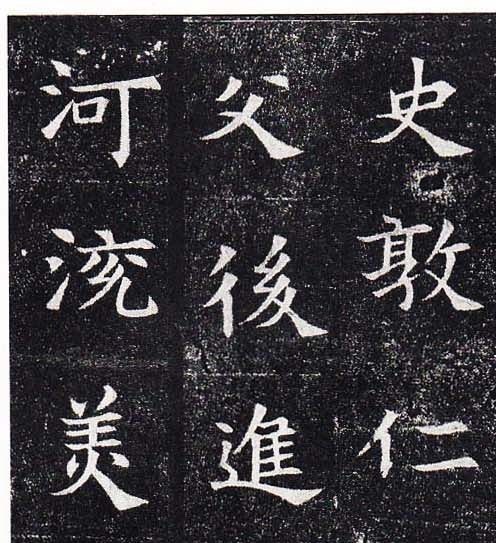 史敦仁
父後進
河流美